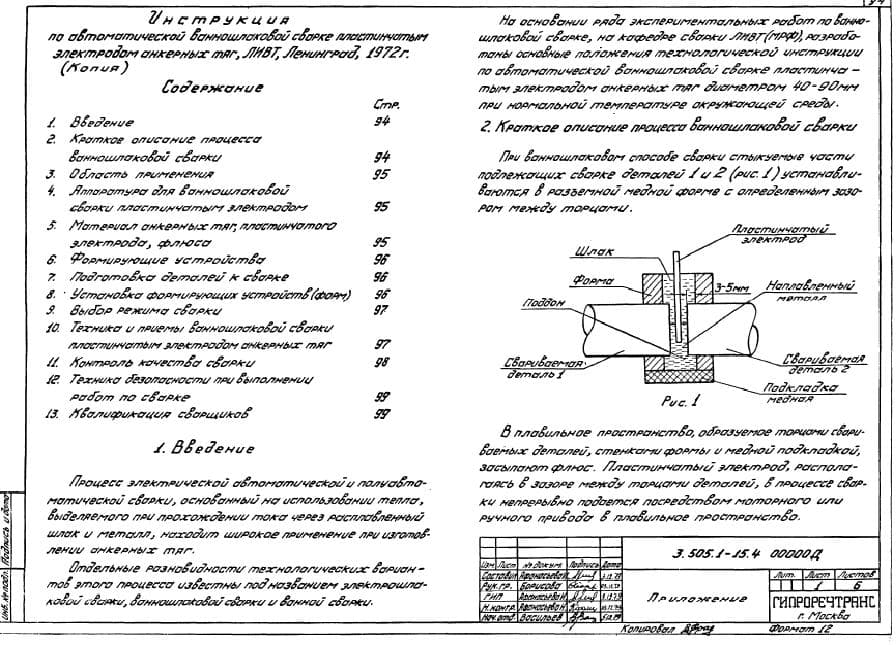 Инструкция
по автоматической ванношлаковой сварке пластинчатым
электродом анкерных тяг, ЛИВТ, Ленинград, 1972г.
(Копия)
Содержание
Стр.
1. Введение 94
2. Краткое описание процесса
ванношлаковой сварки 94
3. Область применения 95
4. Аппаратура для ванношлаковой
сварки пластинчатым электродом 95
5. Материал анкерных тяг, пластинчатого
электрода, флюса 95
6. Формирующие устройства 96
7. Подготовка деталей к сварке 96
8. Установка формирующих устройств (форм) 96
9. Выбор режима сварки 97
10. Техника и приемы ванношлаковой сварки
пластинчатым электродом анкерных тяг 97
11. Контроль качества сварки 98
12. Техника безопасности при выполнении
работ по сварке 99
13. Квалификация сварщиков 99
1. Введение
Процесс электрической автоматической и полуавто-
матической сварки, основанный на использовании тепла,
выделяемого при прохождении тока через расплавленный
шлак и металл, находит широкое применение при изготов-
лении анкерных тяг.
Отдельные разновидности технологических вариан-
тов этого процесса известны под названием электрошла-
ковой сварки, ванношлаковой сварки и ванной сварки.
На основании ряда экспериментальных работ по ванно-
шлаковой сварке, на кафедре сварки ЛИВТ (МРФ), разрабо-
таны основные положения технологической инструкции
по автоматической ванношлаковой сварке пластинча-
тым электродом анкерных тяг диаметром 40÷90мм
при нормальной температуре окружающей среды.
2. Краткое описание процесса ванношлаковой сварки
При ванношлаковом способе сварки стыкуемые части
подлежащих сварке деталей 1 и 2 (рис. 1) устанавли-
ваются в разъемной медной форме с определенным зазо-
ром между торцами.
Пластинчатый
электрод
Шлак
Форма
3-5мм
Наплавленный
металл
Поддон
Свариваемая
деталь 1
Свариваемая
деталь 2
Подкладка
медная
Рис. 1
В плавильное пространство, образуемое торцами свари-
ваемых деталей, стенками формы и медной подкладкой,
засыпают флюс. Пластинчатый электрод, распола-
гаясь в зазоре между торцами деталей, в процессе свар-
ки непрерывно подается посредством моторного или
ручного привода в плавильное пространство.
3.505.1-15.4 00000Д
Изм. Лист № докум. Подпись Дата
Составил Афанасьева Н.
Рук. гр. Борисова
ГИП Афанасьева Н.
Н. контр. Афанасьева Н.
Нач. отд. Васильев
Приложение
Лит. Лист Листов
1 6
ГИПРОРЕЧТРАНС
г. Москва
Копировал
Формат 12
Подпись и дата
Инв. № подл.